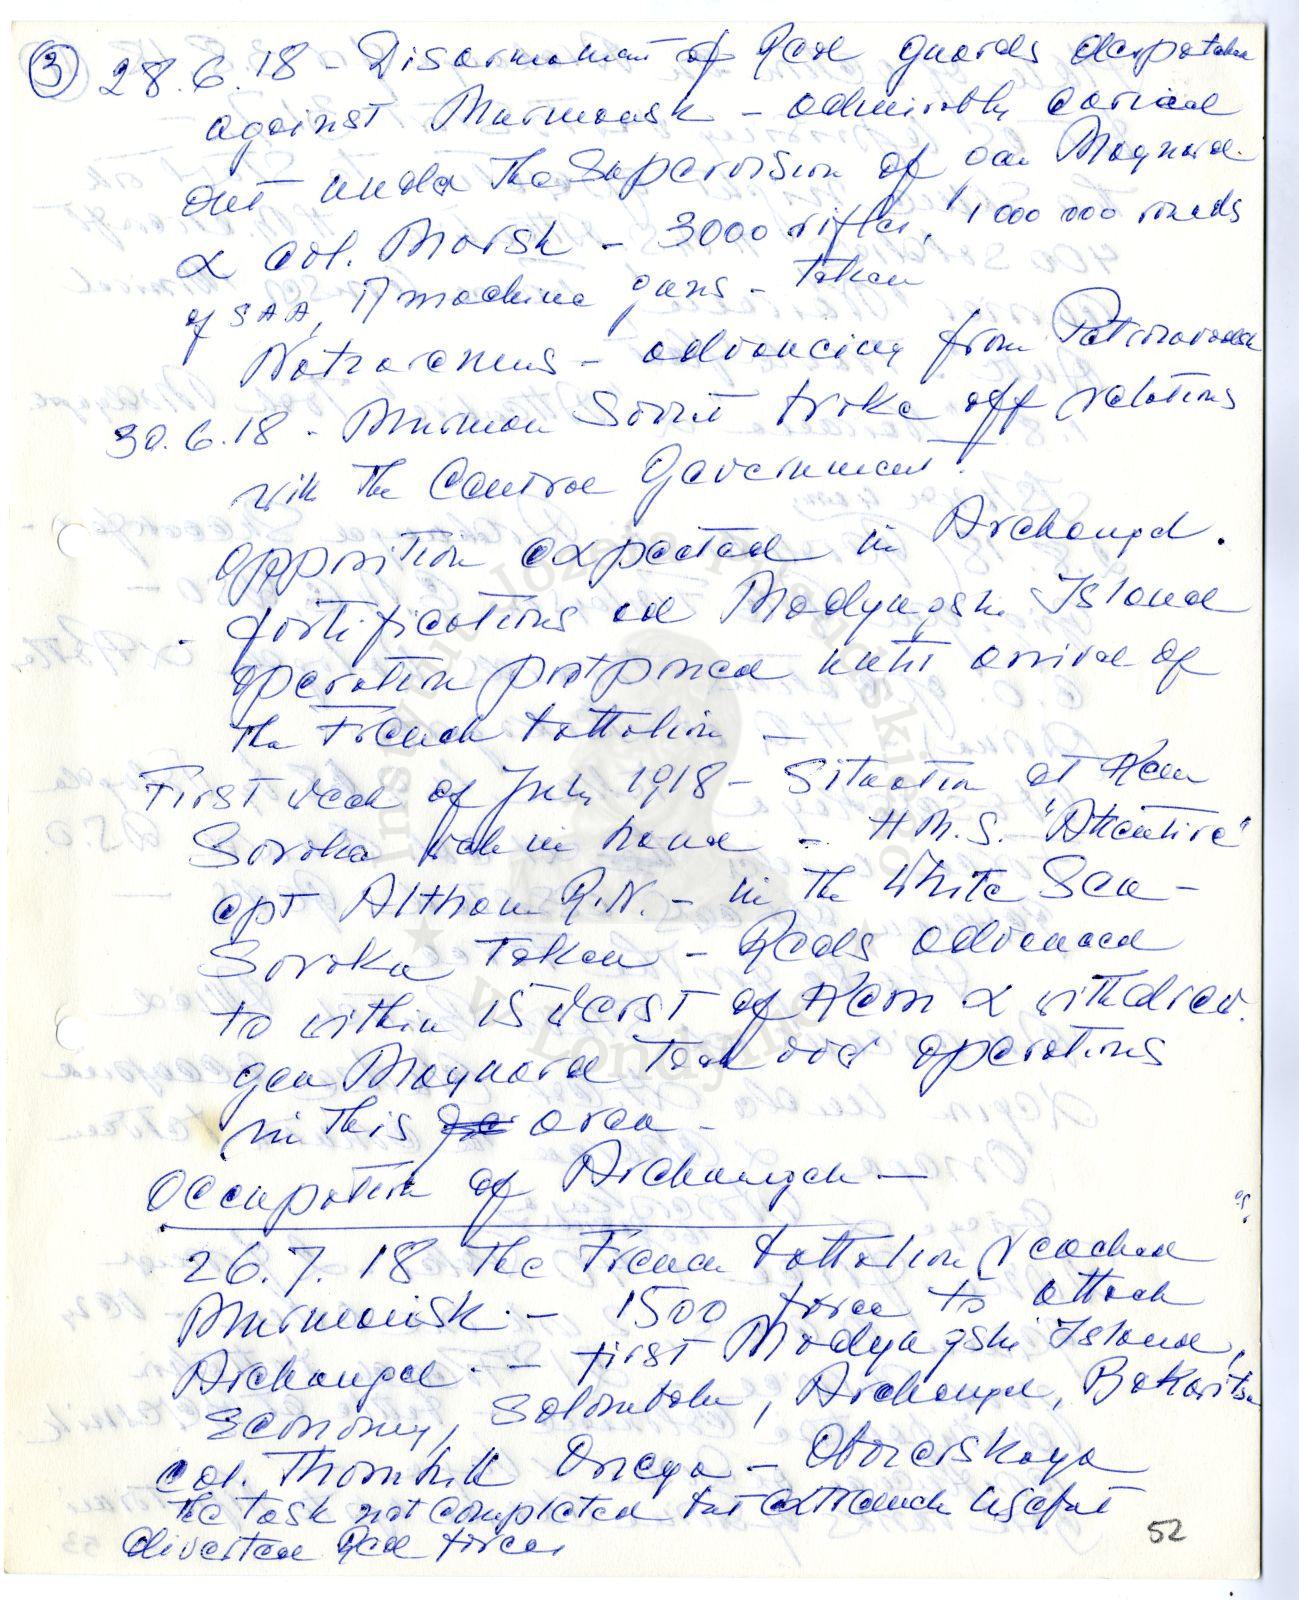 ③ 28.6.18 - Disarmament of Red guards despatched
against Murmansk - admirably carried
out under the supervision of Gen Maynard
& col. Marsh - 3000 rifles, 1 000 000 rounds
of SAA, 17 machine guns - taken
Natzarenus - advancing from Petrozavodsk
30.6.18 - Murman Soviet broke off relations
with the Central Government.
opposition expected in Archangel.
- fortifications on Modyugski Island
operation postponed until arrival of
the French battalion -
First week of July 1918 - Situation at Kem
Soroka well in hand - H.M.S. "Attentive"
cpt Altham R.N. - in the White Sea -
Soroka taken - Reds advanced
to within 15 verst of Kem & withdrew.
gen Maynard took over operations
in this area -
Occupation of Archangel -
26.7.18 the French battalion reached
Murmansk. - 1500 force to attack
Archangel. - first Modyugski Island,
Economy, Solombola, Archangel, Bakaritsa
col. Thornhill Onega - Obozerskaya
the task not completed but extremely useful
diverted Red forces
52
Instytut Józefa Piłsudskiego
w Londynie